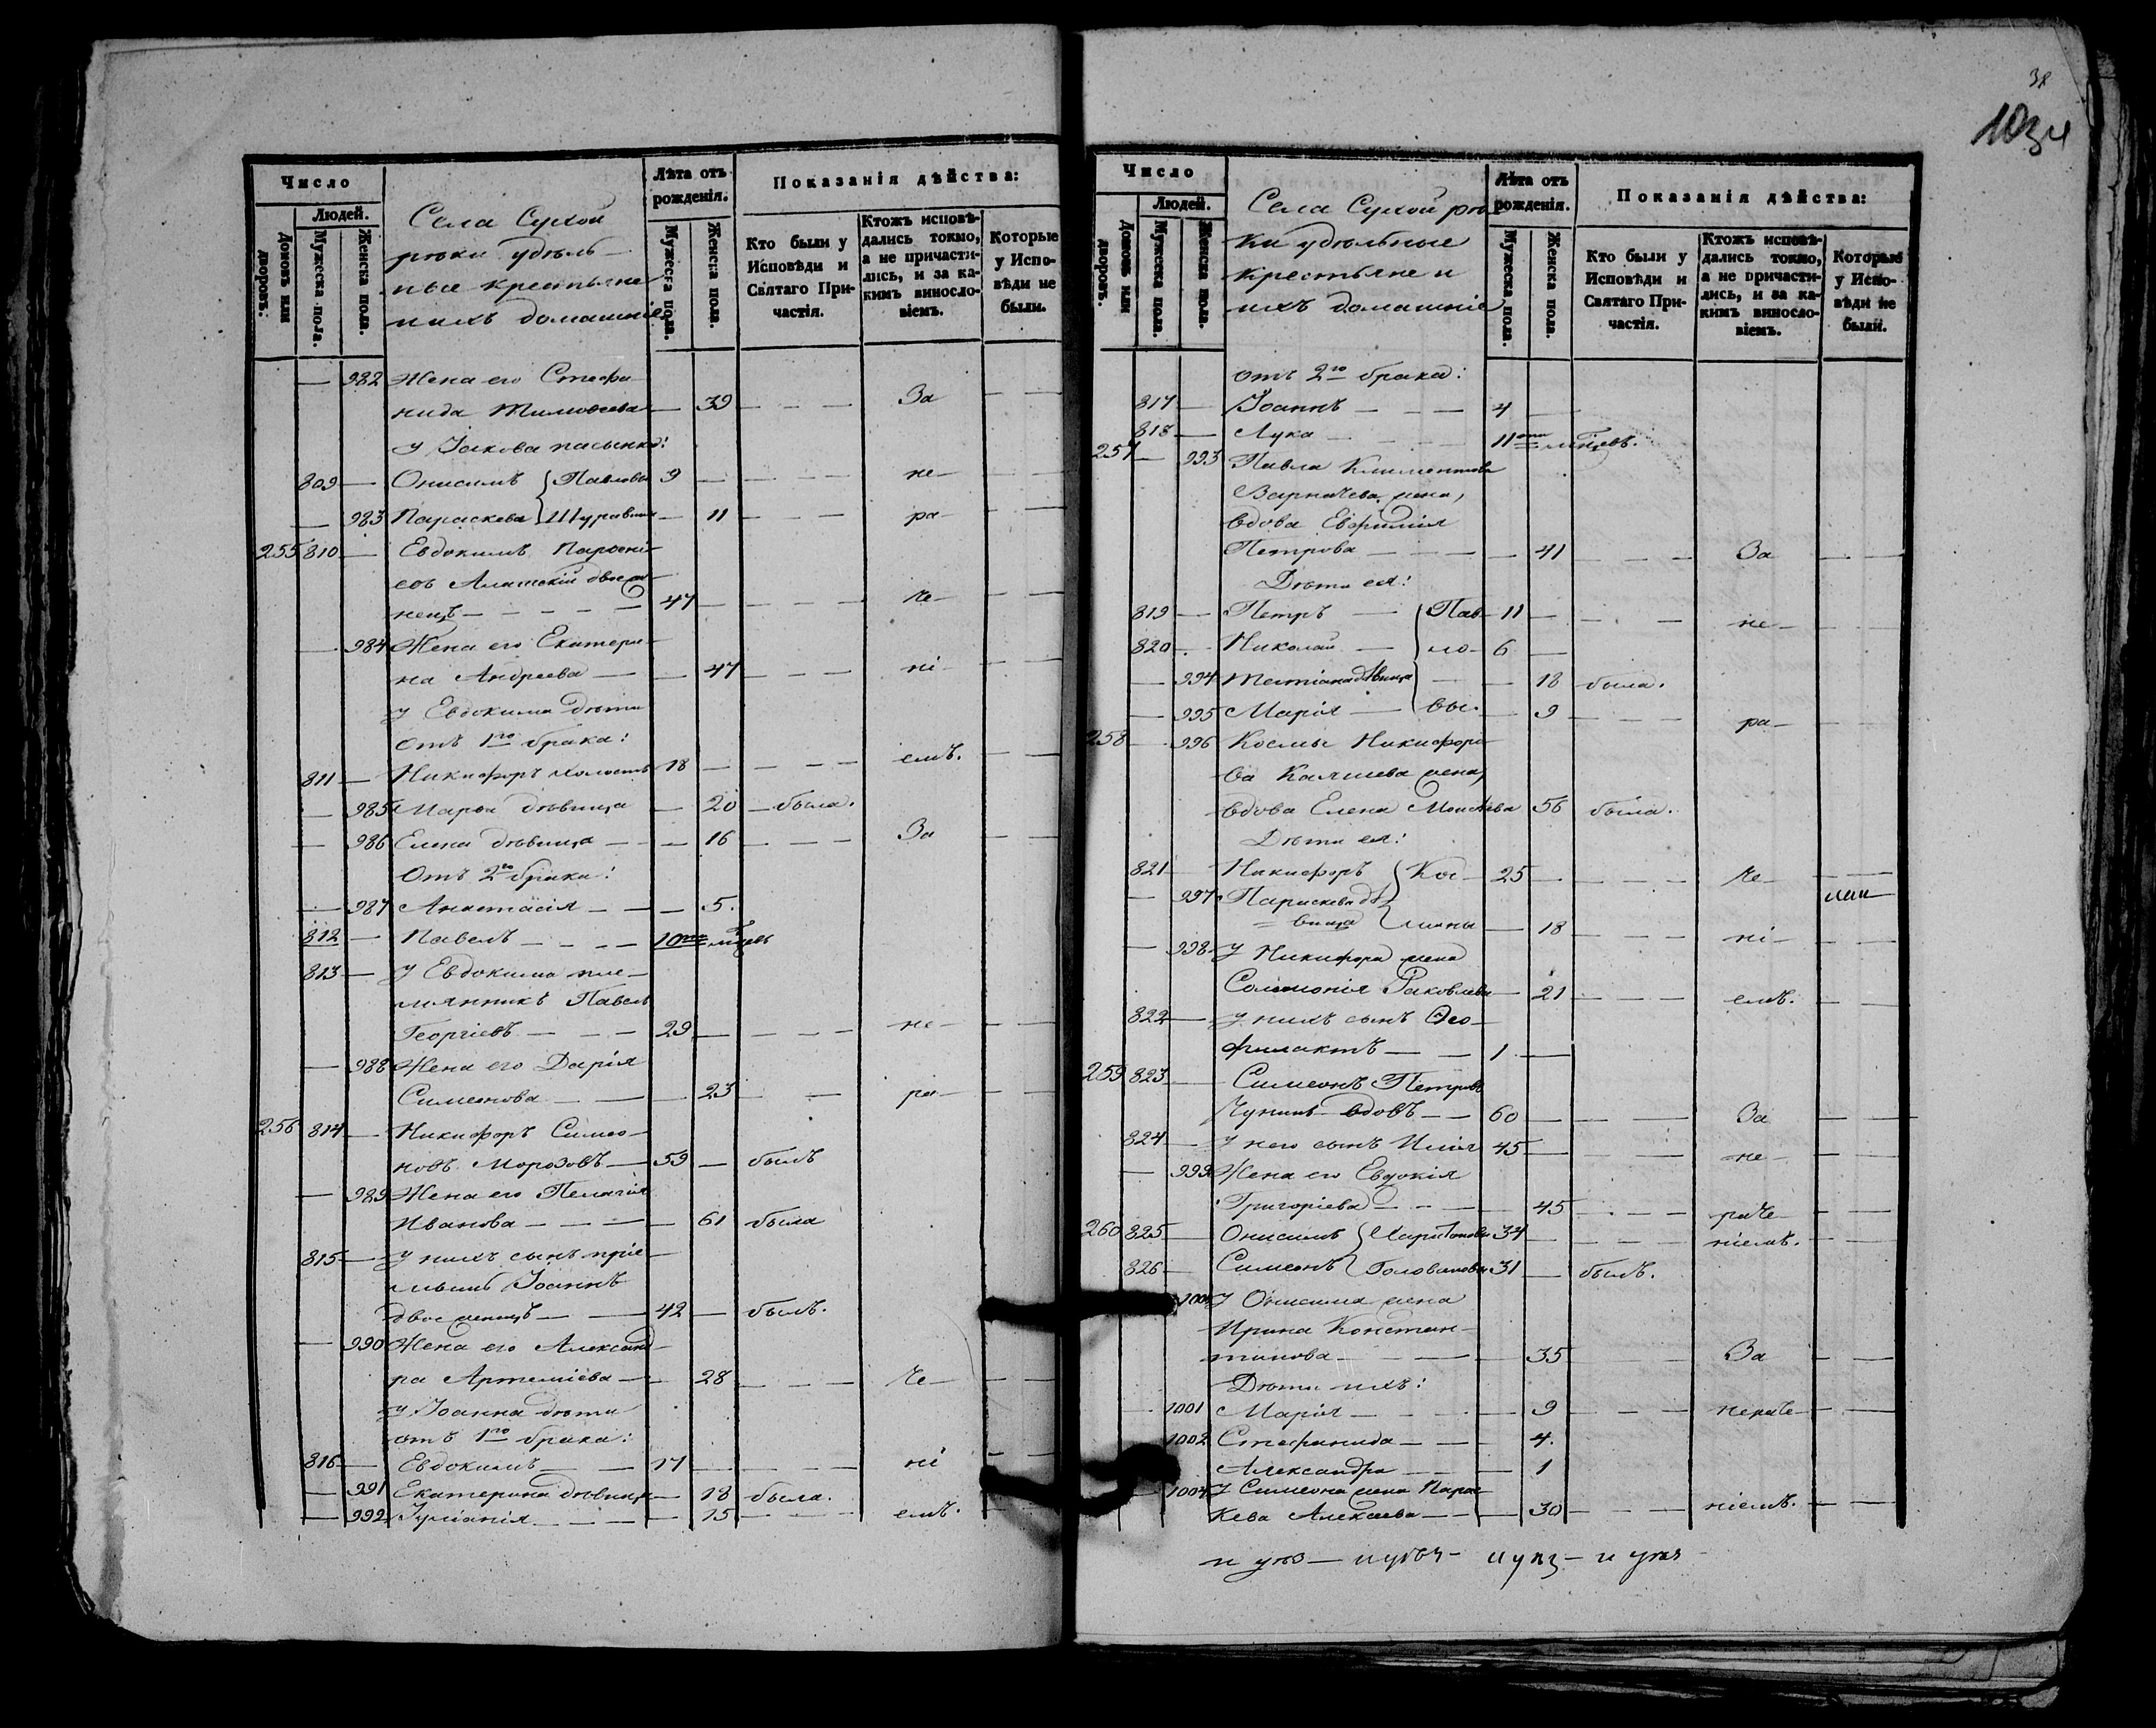 Число
Людей.
Домовъ или дворовъ.
Мужеска пола.
Женска пола.
Села Сухой
рѣки удѣль-
ные крестьяне
и ихъ домашніе
Лѣта отъ рожденія.
Мужеска пола.
Женска пола.
Показанія дѣйства:
Кто были у Исповѣди и Святаго Причастія.
Ктожъ исповѣдались токмо, а не причастились, и за какимъ винословіемъ.
Которые у Исповѣди не были.
— 982 Жена его Стефа-
нида Тимоѳеева — 39 — — — За — —
у Іакова пасынки:
809 — Онисимъ { Павловы 9 — — — — не — — —
— 983 Параскева { — 11 — — — ра — — —
255 810 — Евдокимъ Парѳені-
евъ двоеже-
нецъ — — — — 47 — — — — че — — —
— 984 Жена его Екатери-
на Андреева — — 47 — — — ні — — —
у Евдокима дѣти
отъ 1го брака:
811 — Никифоръ холостъ 18 — — — — емъ. — —
— 985 Марѳа дѣвица — 20 — была.
— 986 Елена дѣвица — — 16 — — — За — —
Отъ 2го брака:
— 987 Анастасія — — — 5.
812 — Павелъ — — — 10ти мцевъ
813 — у Евдокима пле-
мянникъ Павелъ
Георгіевъ — — — 29 — — — не — — —
— 988 Жена его Дарія
Симеонова — — — 23 — — ра — — —
256 814 — Никифоръ Симео-
новъ Морозовъ — 59 — былъ
— 989 Жена его Пелагія
Иванова — — — — 61 была
815 — у нихъ сынъ пріе-
мышъ Іоаннъ
двоеженецъ — — 42 — былъ.
— 990 Жена его Александ-
ра Артеміева — — 28 — — — Че — — —
у Іоанна дѣти
отъ 1го брака:
816 — Евдокимъ — — 17 — — — — ні — —
— 991 Екатерина дѣвица — 18 была.
— 992 Іуліанія — — — — 15 — — — емъ. — —
38
103
Число
Людей.
Домовъ или дворовъ.
Мужеска пола.
Женска пола.
Села Сухой рѣ-
ки удѣльные
крестьяне и
ихъ домашніе
Лѣта отъ рожденія.
Мужеска пола.
Женска пола.
Показанія дѣйства:
Кто были у Исповѣди и Святаго Причастія.
Ктожъ исповѣдались токмо, а не причастились, и за какимъ винословіемъ.
Которые у Исповѣди не были.
отъ 2го брака:
817 — Іоаннъ — — — 4 —
818 — Лука — — — 11ти мцевъ.
257 — 993 Павла Климентова
Варначева жена,
вдова Евфимія
Петрова — — — — 41 — — — За — —
Дѣти ея:
819 — Петръ — { Пав- 11 — — — — не — — —
820 — Николай — { ло- 6 —
— 994 Татіана дѣвица { — 18 была.
— 995 Марія — { вы. — 9 — — — ра — — —
258 — 996 Космы Никифоро-
ва жена,
вдова Елена Моисѣева 56 была.
Дѣти ея:
821 — Никифоръ { Кос- 25 — — — — че — — —
— 997 Параскева дѣ-
вица { мины — 18 — — — ні — — —
— 998 У Никифора жена
Соломонія Іаковлева — 21 — — — емъ. — —
822 — у нихъ сынъ Ѳео-
филактъ — — 1 —
259 823 — Симеонъ Петровъ
Чунинъ вдовъ — — 60 — — — За — —
824 — у него сынъ Илія 45 — — — — не — — —
— 999 Жена его Евдокія
Григоріева — — — — 45 — — — раче — — —
260 825 — Онисимъ { Харитоновы 34 — — — — ніемъ. — —
826 — Симеонъ { Головановы 31 — былъ.
1000 У Онисима жена
Ирина Констан-
тинова — — — — 35 — — — За — —
Дѣти ихъ:
— 1001 Марія — — — — 9 — — — нераче — — —
1002 Стефанида — — — 4.
Александра — — — 1
— 1004 У Симеона жена Парас-
кева Алексѣева — — — 30 — — — ніемъ. — —